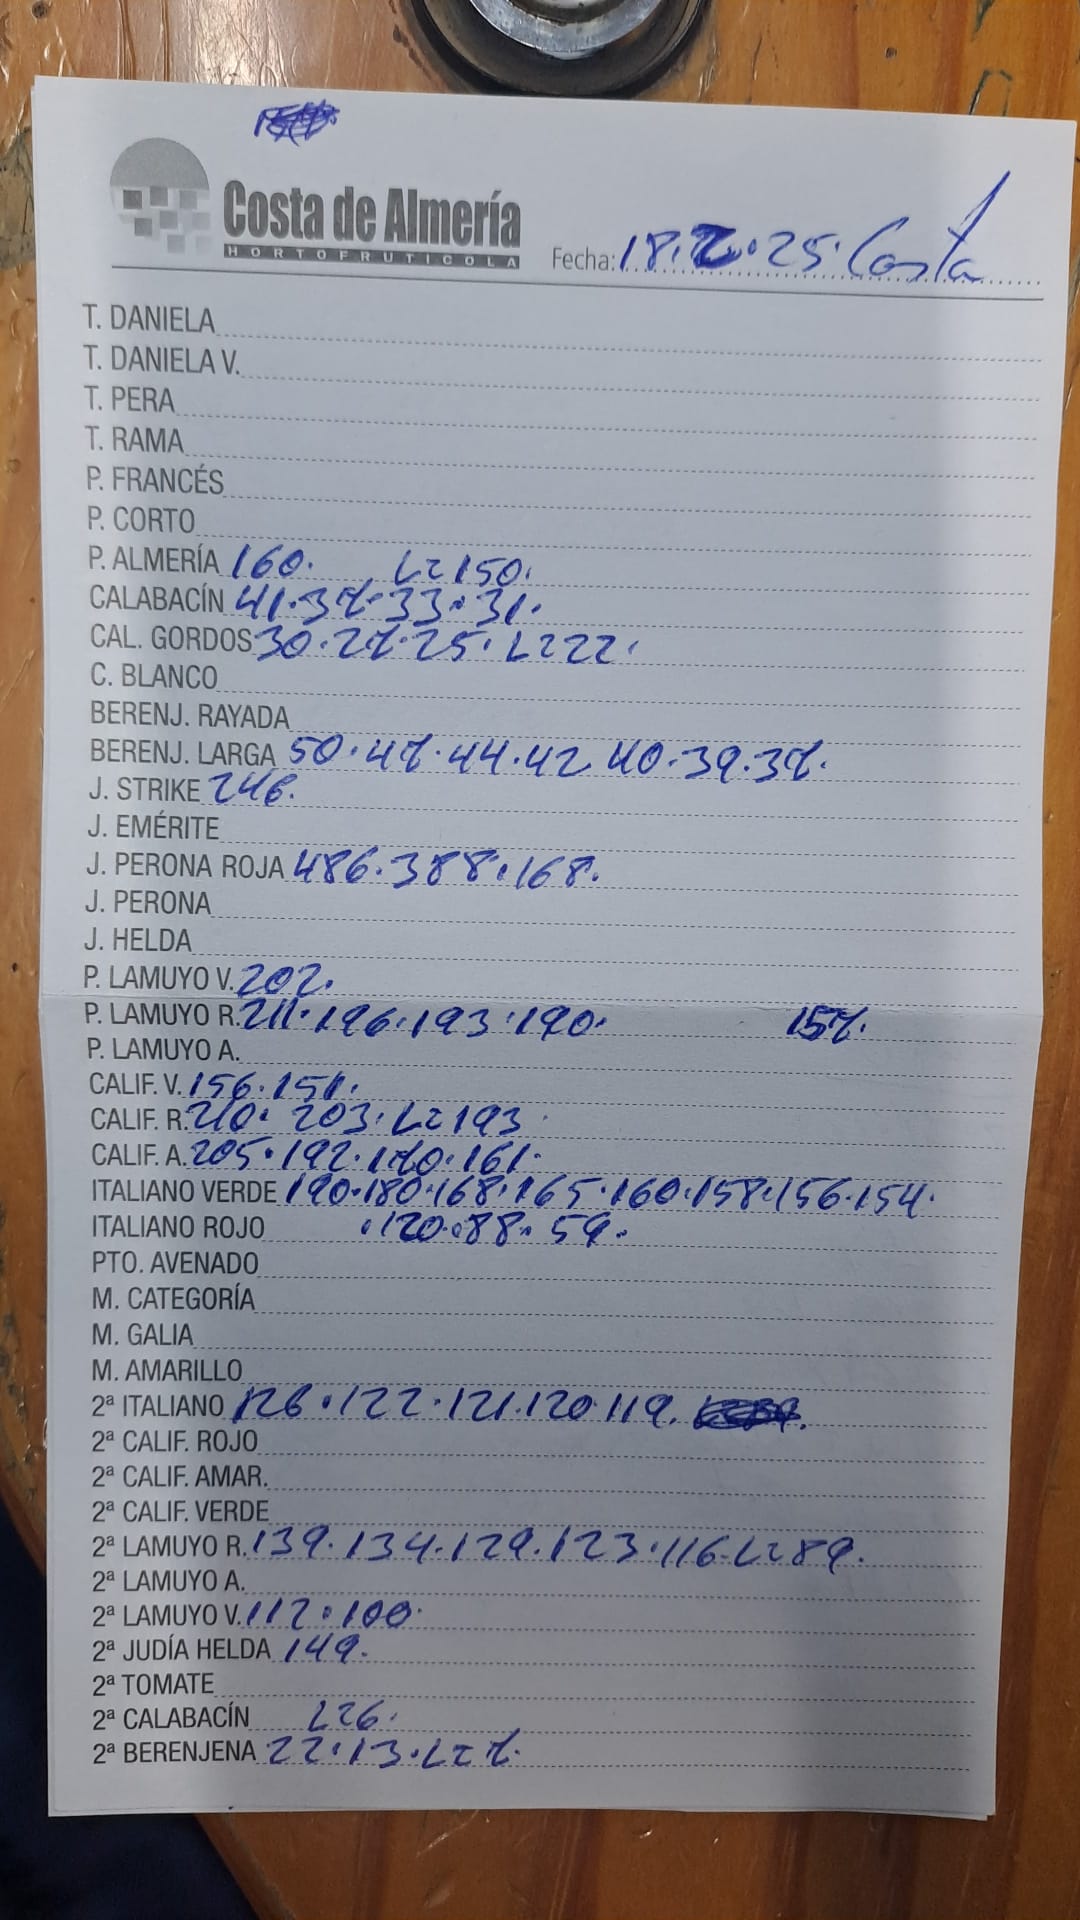 Costa de Almería
HORTOFRUTICOLA
Fecha: 18.2.25. Costa
T. DANIELA
T. DANIELA V.
T. PERA
T. RAMA
P. FRANCÉS
P. CORTO
P. ALMERÍA 160. Lz 150.
CALABACÍN 41.37.33.31.
CAL. GORDOS 30.27.25. Lz 22.
C. BLANCO
BERENJ. RAYADA
BERENJ. LARGA 50.47.44.42 40.39.37.
J. STRIKE 246.
J. EMÉRITE
J. PERONA ROJA 486.388.168.
J. PERONA
J. HELDA
P. LAMUYO V. 202.
P. LAMUYO R. 211.196.193.190. 157.
P. LAMUYO A.
CALIF. V. 156.151.
CALIF. R. 210. 203. Lz 193
CALIF. A. 205.192.170.161.
ITALIANO VERDE 190.180.168.165.160.158.156.154.
ITALIANO ROJO .120.88. 59.
PTO. AVENADO
M. CATEGORÍA
M. GALIA
M. AMARILLO
2ª ITALIANO 126.122.121.120 119.
2ª CALIF. ROJO
2ª CALIF. AMAR.
2ª CALIF. VERDE
2ª LAMUYO R. 139.134.129.123.116. Lz 89.
2ª LAMUYO A.
2ª LAMUYO V. 112.100.
2ª JUDÍA HELDA 149.
2ª TOMATE
2ª CALABACÍN Lz 6.
2ª BERENJENA 22.13. Lz 7.